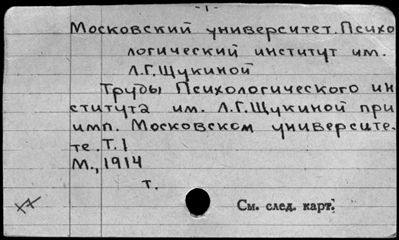 -1-
Московский университет. Психо
логический институт им.
Л.Г.Щукиной
Труды Психологического ин
ститута им. Л.Г.Щукиной при
имп. Московском университе.
те. Т. 1
М., 1914
т.
См. след. карт.